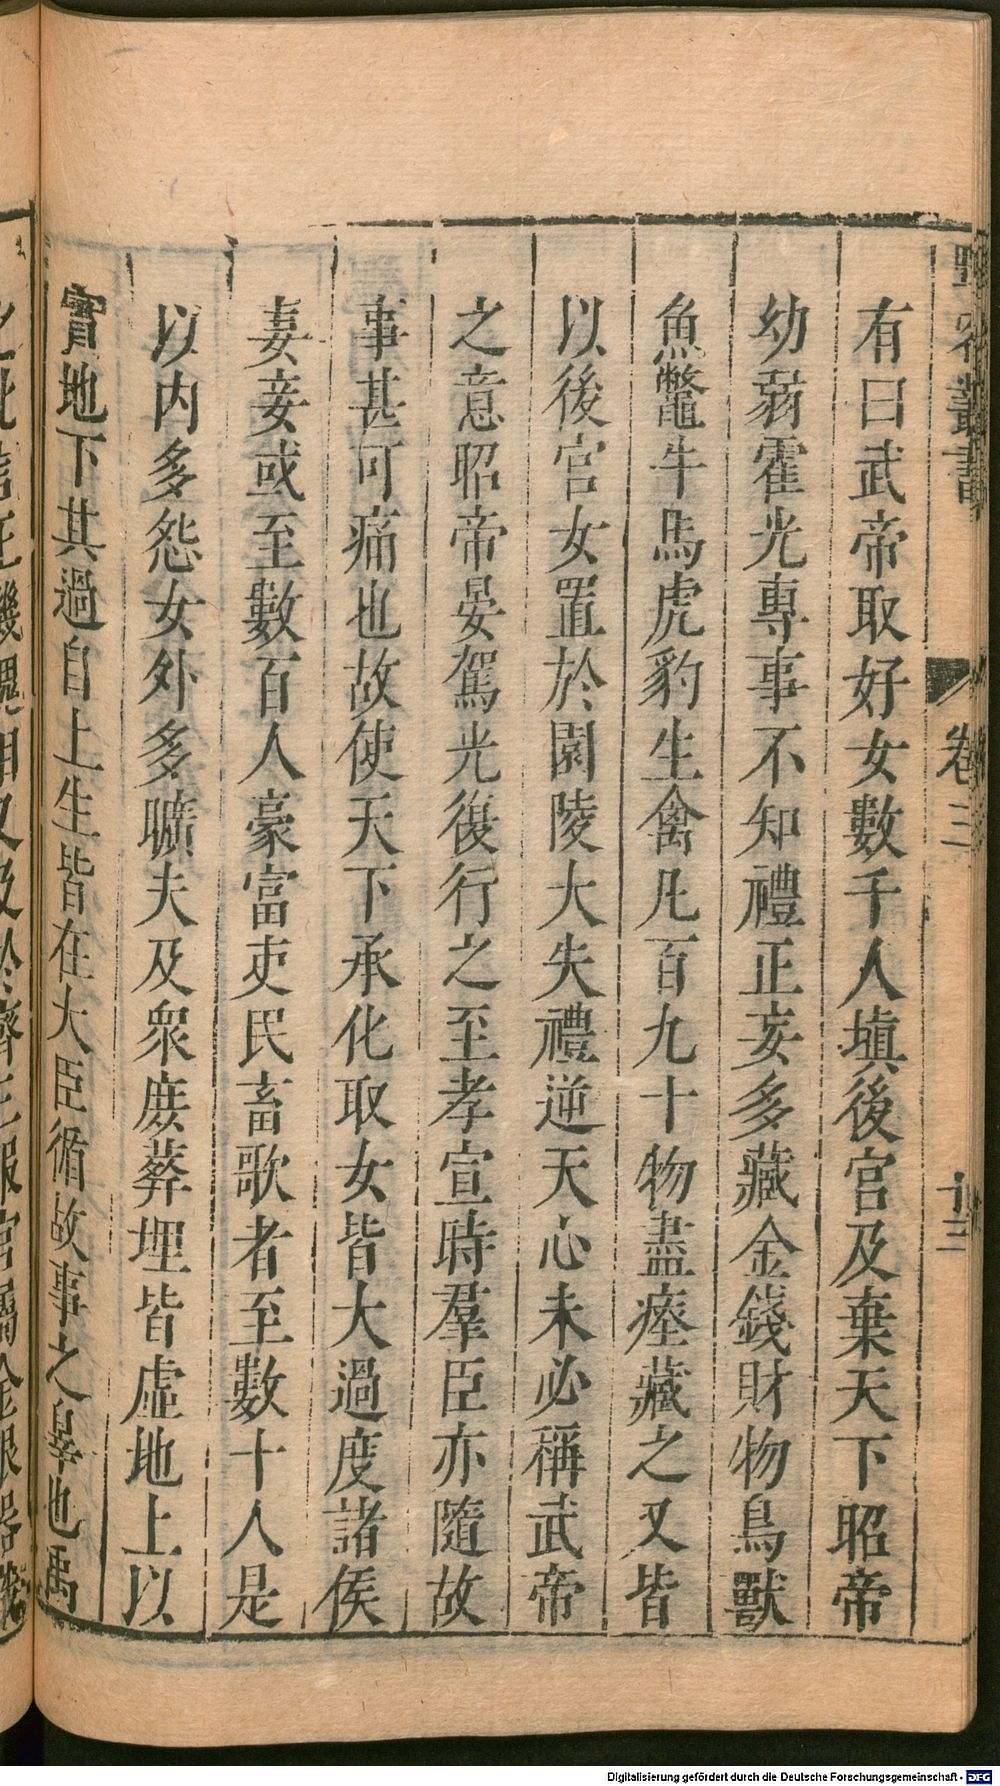 有曰武帝取好女數千人填後宮及棄天下昭帝
幼弱霍光專事不知禮正妄多藏金錢財物鳥獸
魚鼈牛馬虎豹生禽凡百九十物盡瘞藏之又皆
以後宮女置於園陵大失禮逆天心未必稱武帝
之意昭帝晏駕光復行之至孝宣時羣臣亦隨故
事甚可痛也故使天下承化取女皆大過度諸侯
妻妾或至數百人豪富吏民畜歌者至數十人是
以内多怨女外多曠夫及衆庶葬埋皆虛地上以
實地下其過自上生皆在大臣循故事之辠也禹
卷三
Digitalisierung gefördert durch die Deutsche Forschungsgemeinschaft - DFG